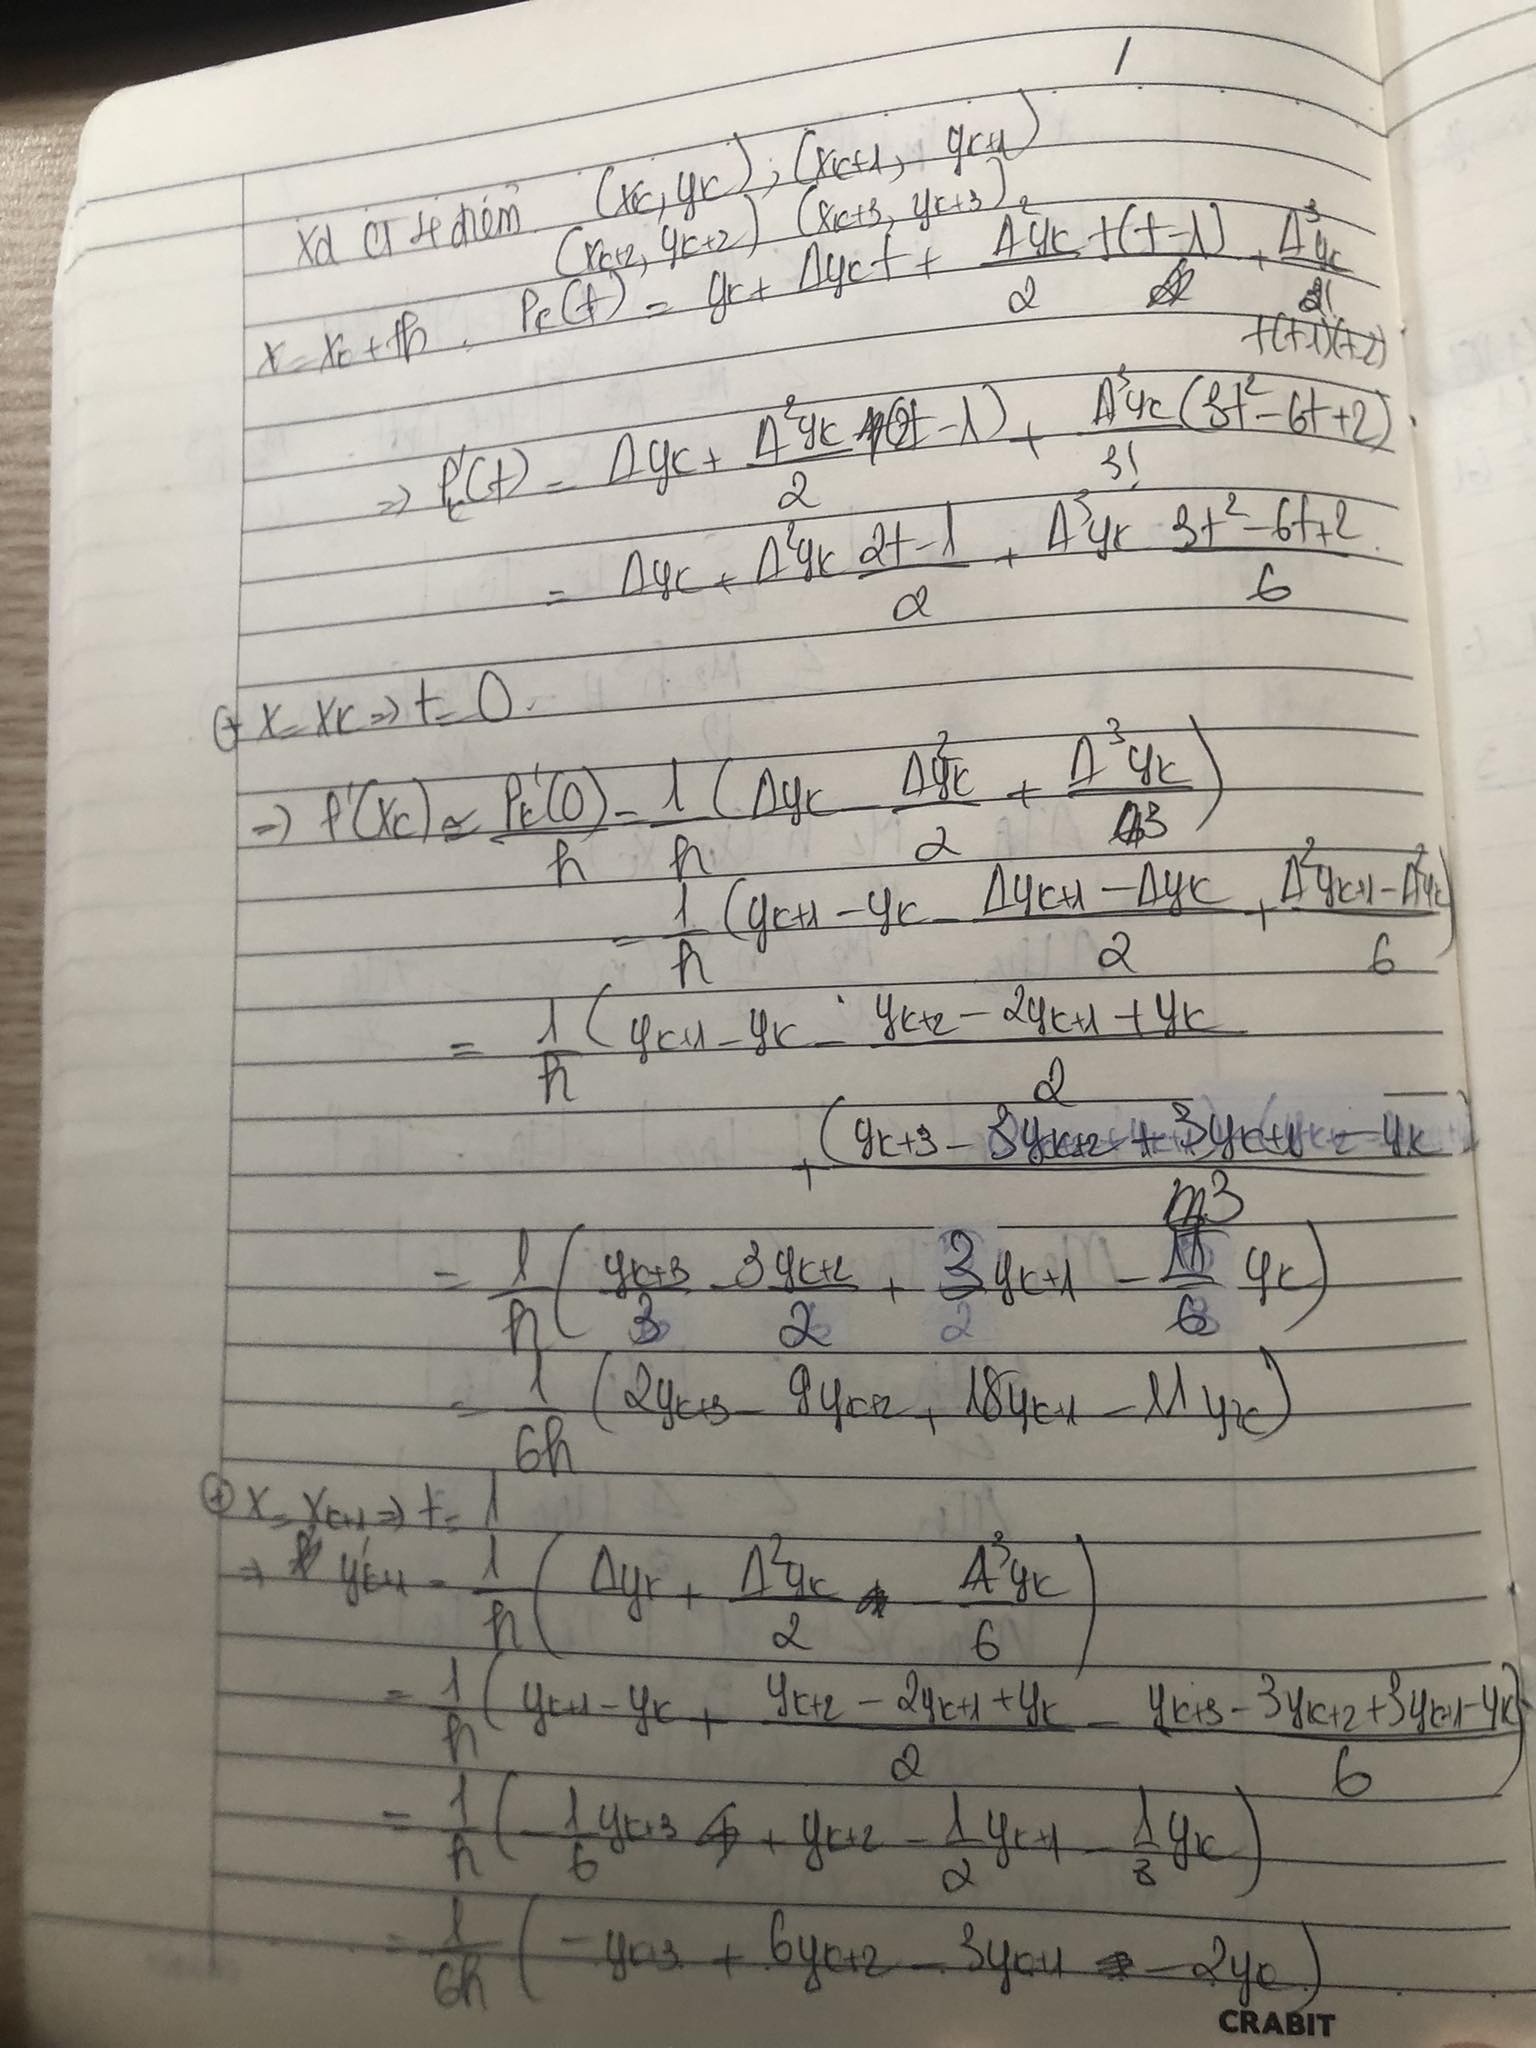 1
Xd ct 4 điểm (xk, yk); (xk+1, yk+1)
(xk+2, yk+2) (xk+3, yk+3)
x = xk + th. Pk(t) = yk + Δyk t + Δ²yk/2 t(t-1) + Δ³yk/3! t(t-1)(t-2)
=> Pk'(t) = Δyk + Δ²yk/2 (2t-1) + Δ³yk/3! (3t²-6t+2)
= Δyk + Δ²yk (2t-1)/2 + Δ³yk (3t²-6t+2)/6
⊕ x = xk => t = 0.
=> f'(xk) ≈ Pk'(0)/h = 1/h (Δyk - Δ²yk/2 + Δ³yk/3)
= 1/h (yk+1 - yk - (Δyk+1 - Δyk)/2 + (Δ²yk+1 - Δ²yk)/6)
= 1/h (yk+1 - yk - (yk+2 - 2yk+1 + yk)/2
+ (yk+3 - 3yk+2 + 3yk+1 - yk)/3
= 1/h (yk+3/3 - 3yk+2/2 + 3/2 yk+1 - 11/6 yk)
= 1/6h (2yk+3 - 9yk+2 + 18yk+1 - 11yk)
⊕ x = xk+1 => t = 1
=> y'k+1 = 1/h (Δyk + Δ²yk/2 - Δ³yk/6)
= 1/h (yk+1 - yk + (yk+2 - 2yk+1 + yk)/2 - (yk+3 - 3yk+2 + 3yk+1 - yk)/6)
= 1/h (-1/6 yk+3 + yk+2 - 1/2 yk+1 - 1/3 yk)
= 1/6h (-yk+3 + 6yk+2 - 3yk+1 - 2yk)
CRABIT